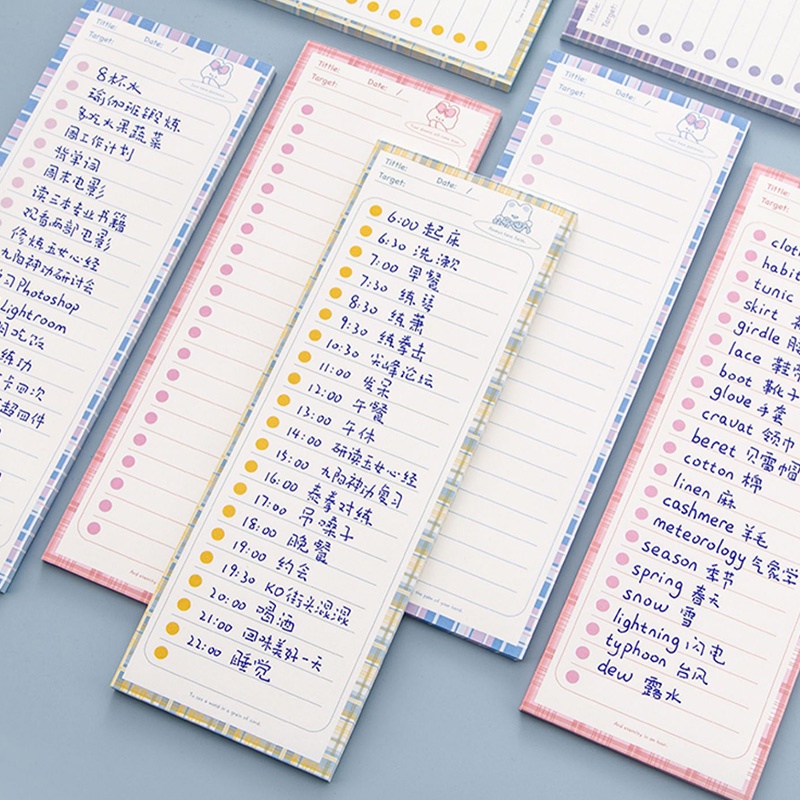 Tittle:
Date: /
Target:
8杯水
瑜伽班锻炼
多吃水果蔬菜
周工作计划
背单词
周末电影
读三本专业书籍
观看两部电影
修炼玉女心经
九阳神功研讨会
习Photoshop
Lightroom
吃饭
练功
四次
四件
Tittle:
Date: /
Target:
Tittle:
Date: /
Target:
6:00 起床
6:30 洗漱
7:00 早餐
7:30 练琴
8:30 练萧
9:30 练拳击
10:30 尖峰论坛
11:00 发呆
12:00 午餐
13:00 午休
14:00 研读玉女心经
15:00 九阳神功复习
16:00 泰拳对练
17:00 吊嗓子
18:00 晚餐
19:00 约会
19:30 KO街头混混
20:00 喝酒
21:00 回味美好一天
22:00 睡觉
To see a world in a grain of sand.
Tittle:
Date: /
Target:
the palm of your hand.
Tittle:
Target:
habit
tunic
skirt
girdle
lace 鞋带
boot 靴子
glove 手套
cravat 领巾
beret 贝雷帽
cotton 棉
linen 麻
cashmere 羊毛
meteorology 气象学
season 季节
spring 春天
snow 雪
lightning 闪电
typhoon 台风
dew 露水
And eternity in an hour.